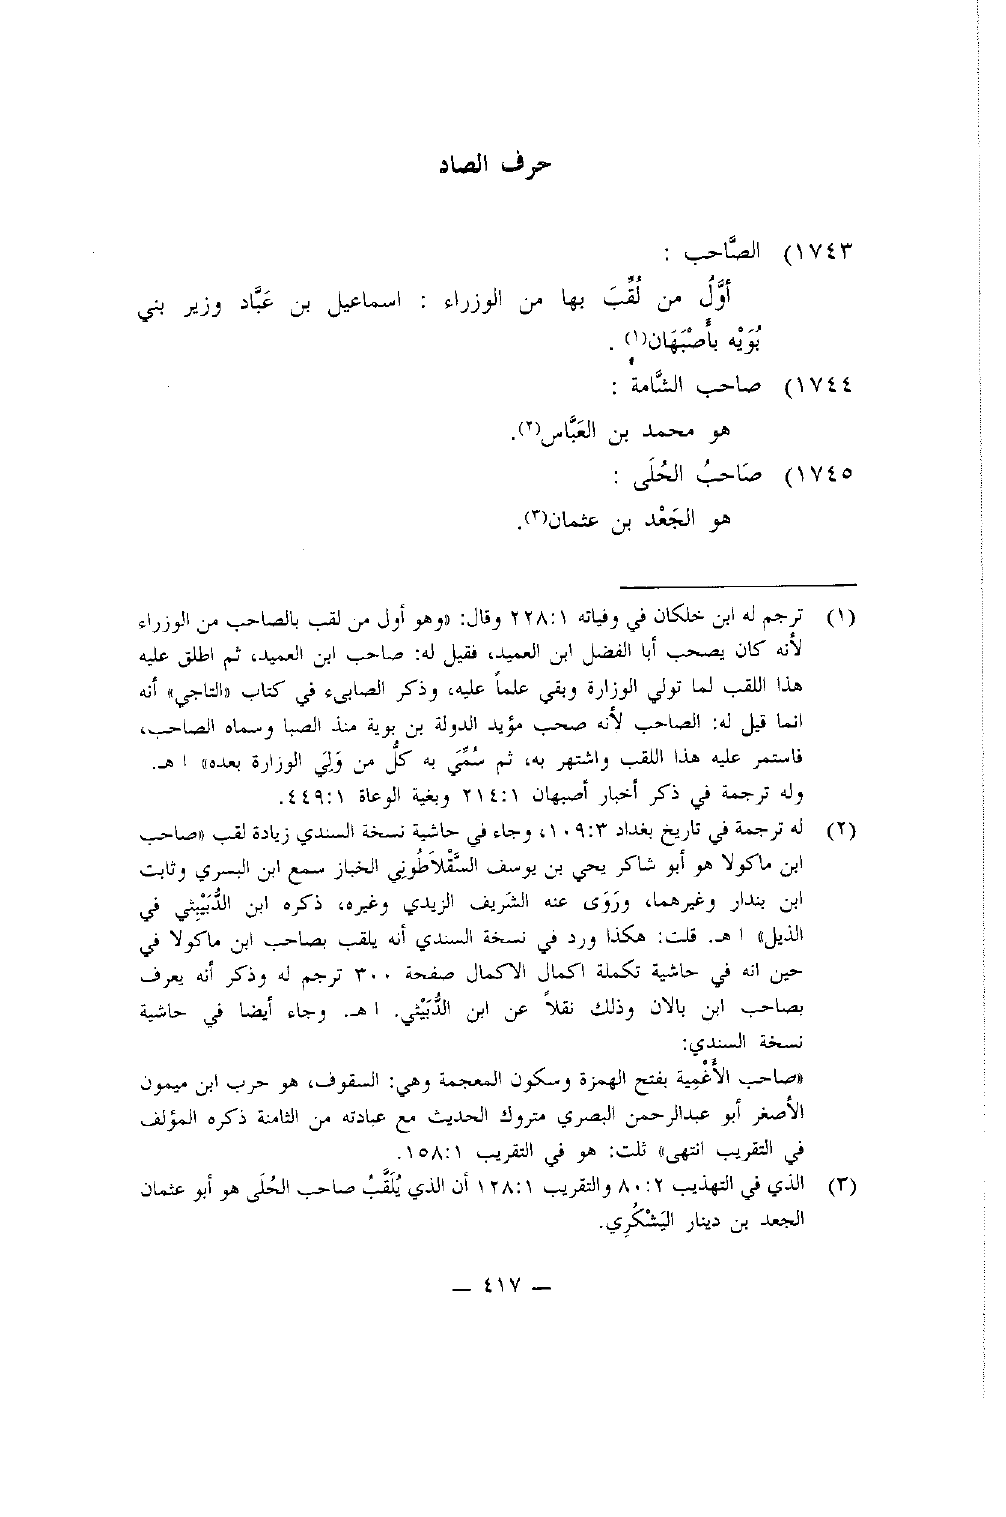 حرف الصاد
١٧٤٣) الصَّاحب :
أوَّلُ من لُقِّبَ بها من الوزراء : اسماعيل بن عَبَّاد وزير بني
بُوَيْه بأَصْبَهَان(١) .
١٧٤٤) صاحب الشَّامة :
هو محمد بن العَبَّاس(٢).
١٧٤٥) صَاحبُ الحُلَى :
هو الجَعْد بن عثمان(٣).
(١) ترجم له ابن خلكان في وفياته ٢٢٨:١ وقال: «وهو أول من لقب بالصاحب من الوزراء
لأنه كان يصحب أبا الفضل ابن العميد، فقيل له: صاحب ابن العميد، ثم اطلق عليه
هذا اللقب لما تولي الوزارة وبقي علماً عليه، وذكر الصابىء في كتاب «التاجي» أنه
انما قيل له: الصاحب لأنه صحب مؤيد الدولة بن بوية منذ الصبا وسماه الصاحب،
فاستمر عليه هذا اللقب واشتهر به، ثم سُمِّيَ به كلُّ من وَلِيَ الوزارة بعده» ا هـ.
وله ترجمة في ذكر أخبار أصبهان ٢١٤:١ وبغية الوعاة ٤٤٩:١.
(٢) له ترجمة في تاريخ بغداد ١٠٩:٣، وجاء في حاشية نسخة السندي زيادة لقب «صاحب
ابن ماكولا هو أبو شاكر يحي بن يوسف السَّقْلاَطُوني الخباز سمع ابن البسري وثابت
ابن بندار وغيرهما، ورَوَى عنه الشريف الزيدي وغيره، ذكره ابن الدُّبَيْثِي في
الذيل» ا هـ. قلت: هكذا ورد في نسخة السندي أنه يلقب بصاحب ابن ماكولا في
حين انه في حاشية تكملة اكمال الاكمال صفحة ٣٠٠ ترجم له وذكر أنه يعرف
بصاحب ابن بالان وذلك نقلاً عن ابن الدُّبَيْثي. ا هـ. وجاء أيضا في حاشية
نسخة السندي:
«صاحب الأَغْمِية بفتح الهمزة وسكون المعجمة وهي: السقوف، هو حرب ابن ميمون
الأصغر أبو عبدالرحمن البصري متروك الحديث مع عبادته من الثامنة ذكره المؤلف
في التقريب انتهى» ثلت: هو في التقريب ١٥٨:١.
(٣) الذي في التهذيب ٨٠:٢ والتقريب ١٢٨:١ أن الذي يُلَقَّبُ صاحب الحُلَى هو أبو عثمان
الجعد بن دينار اليَشْكُرِي.
— ٤١٧ —